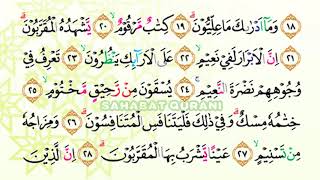 ١٨ وَمَآ اَدْرٰىكَ مَا عِلِّيُّوْنَۗ ١٩ كِتٰبٌ مَّرْقُوْمٌۙ ٢٠ يَّشْهَدُهُ الْمُقَرَّبُوْنَۗ
٢١ اِنَّ الْاَبْرَارَ لَفِيْ نَعِيْمٍۙ ٢٢ عَلَى الْاَرَاۤىِٕكِ يَنْظُرُوْنَۙ ٢٣ تَعْرِفُ فِيْ
وُجُوْهِهِمْ نَضْرَةَ النَّعِيْمِۚ ٢٤ يُسْقَوْنَ مِنْ رَّحِيْقٍ مَّخْتُوْمٍۙ ٢٥
SAHABAT QURANI
خِتٰمُهٗ مِسْكٌۗ وَفِيْ ذٰلِكَ فَلْيَتَنَافَسِ الْمُتَنَافِسُوْنَۗ ٢٦ وَمِزَاجُهٗ
مِنْ تَسْنِيْمٍۙ ٢٧ عَيْنًا يَّشْرَبُ بِهَا الْمُقَرَّبُوْنَۗ ٢٨ اِنَّ الَّذِيْنَ